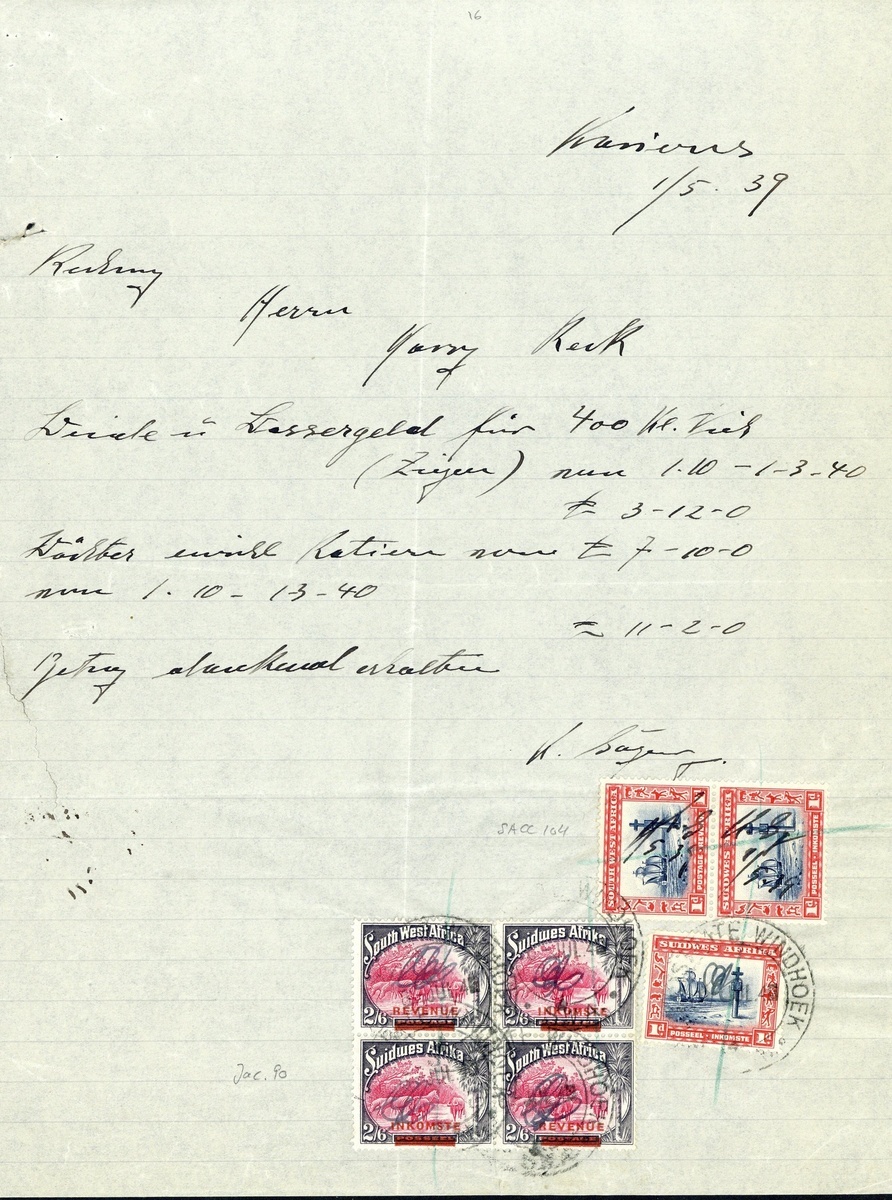 16
1/5. 39
Rechnung
Herrn
Harry Reck
Weide u Wassergeld für 400 Kl. Vieh
(Ziegen) vom 1.10 - 1-3-40
£ 3-12-0
Wächter Ration vom £ 7-10-0
vom 1.10 - 1-3-40
£ 11-2-0
Betrag dankend erhalten
SACC 104
SOUTH WEST AFRICA
POSTAGE · REVENUE
1d 1d
SUIDWES AFRIKA
POSSEEL · INKOMSTE
1d 1d
SUIDWES AFRIKA
1d POSSEEL · INKOMSTE 1d
WINDHOEK
South West Africa
2/6 REVENUE
POSTAGE
Suidwes Afrika
2/6 INKOMSTE
POSSEEL
Suidwes Afrika
2/6 INKOMSTE
POSSEEL
South West Africa
2/6 REVENUE
POSTAGE
Jac. 90